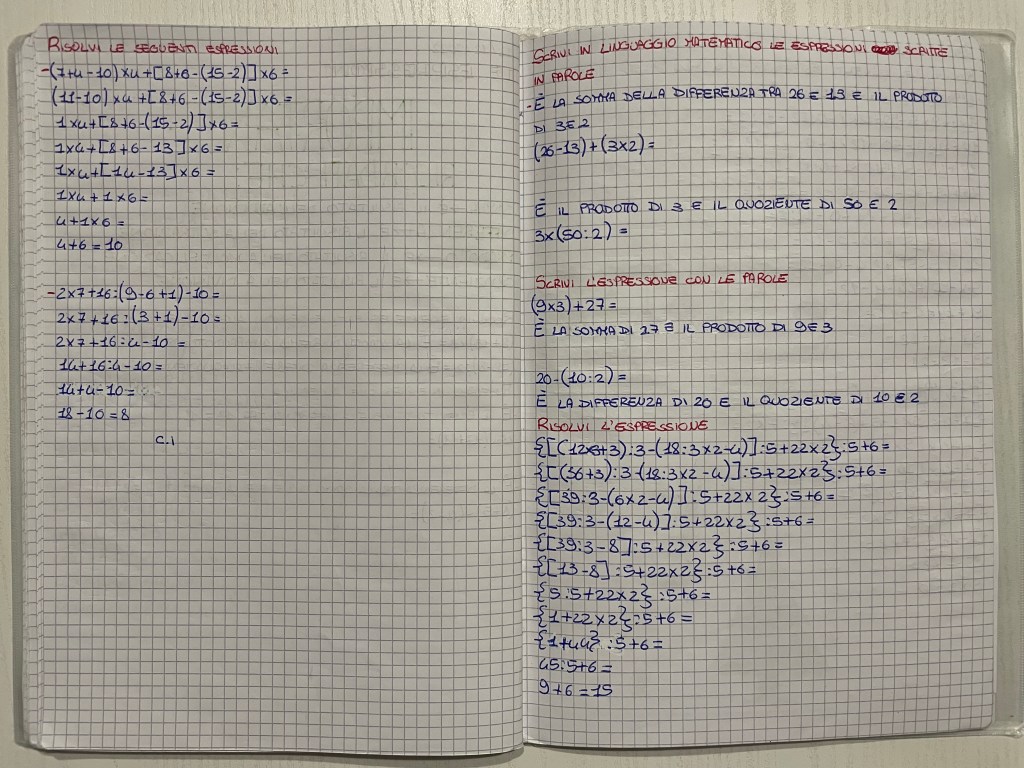 RISOLVI LE SEGUENTI ESPRESSIONI
-(7+4-10)x4+[8+6-(15-2)]x6=
(11-10)x4+[8+6-(15-2)]x6=
1x4+[8+6-(15-2)]x6=
1x4+[8+6-13]x6=
1x4+[14-13]x6=
1x4+1x6=
4+1x6=
4+6=10
-2x7+16:(9-6+1)-10=
2x7+16:(3+1)-10=
2x7+16:4-10 =
14+16:4-10=
14+4-10=
18-10=8
C.I
SCRIVI IN LINGUAGGIO MATEMATICO LE ESPRESSIONI SCRITTE
IN PAROLE
-È LA SOMMA DELLA DIFFERENZA TRA 26 E 13 E IL PRODOTTO
DI 3 E 2
(26-13)+(3x2)=
È IL PRODOTTO DI 3 E IL QUOZIENTE DI 50 E 2
3x(50:2) =
SCRIVI L'ESPRESSIONE CON LE PAROLE
(9x3)+27=
È LA SOMMA DI 27 E IL PRODOTTO DI 9 E 3
20-(10:2)=
È LA DIFFERENZA DI 20 E IL QUOZIENTE DI 10 E 2
RISOLVI L'ESPRESSIONE
{[(12x3+3):3-(18:3x2-4)]:5+22x2}:5+6=
{[(36+3):3-(18:3x2-4)]:5+22x2}:5+6=
{[39:3-(6x2-4)]:5+22x2}:5+6=
{[39:3-(12-4)]:5+22x2}:5+6=
{[39:3-8]:5+22x2}:5+6=
{[13-8]:5+22x2}:5+6=
{5:5+22x2}:5+6=
{1+22x2}:5+6=
{1+44}:5+6=
45:5+6=
9+6=15